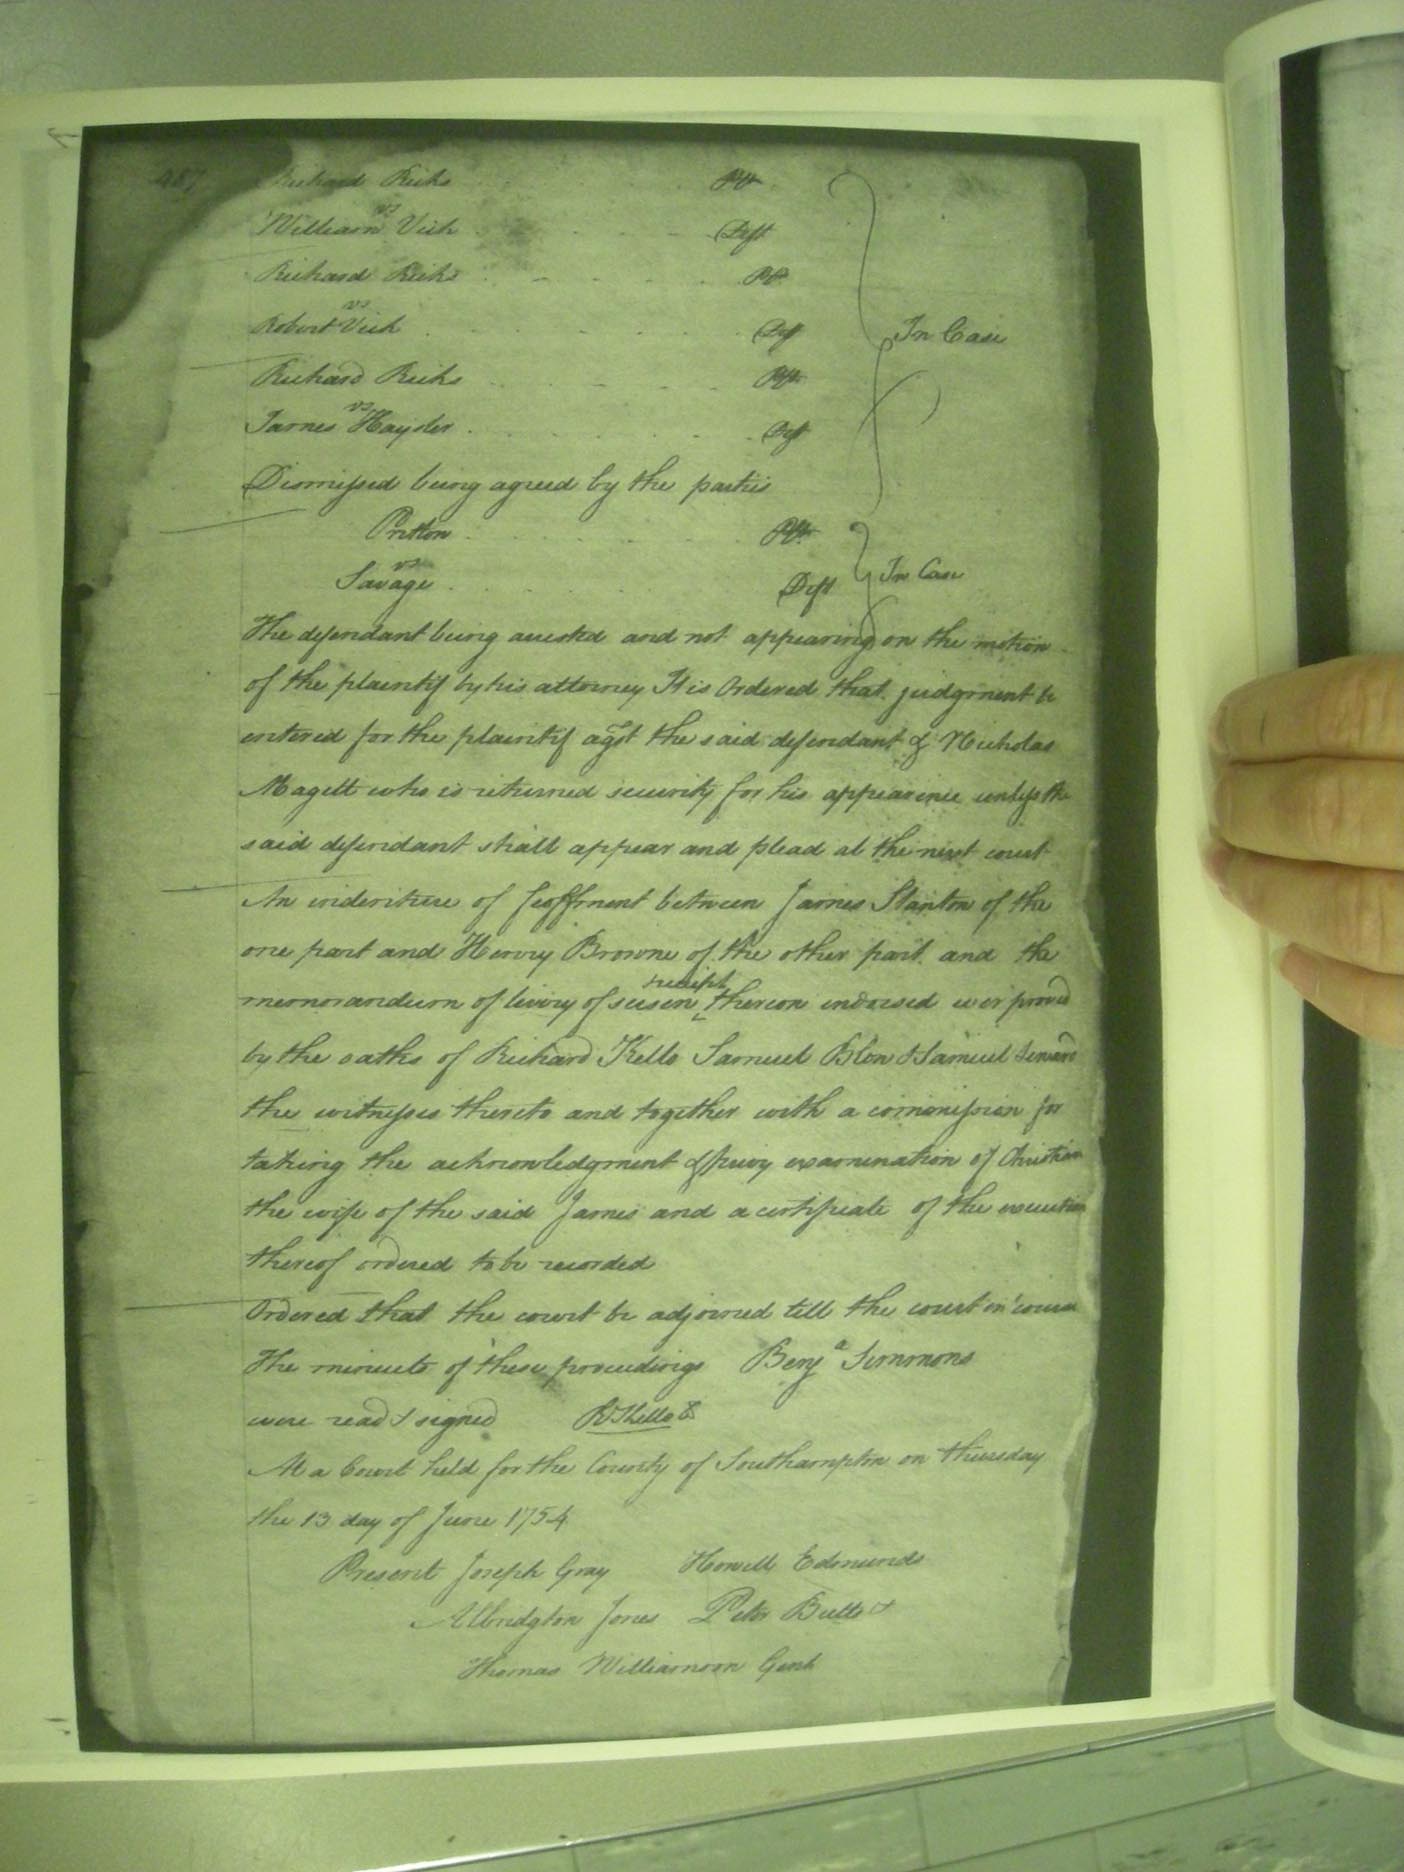 487 Richard Ricks Plt
vs
William Vick Deft
Richard Ricks Plt
vs
Robert Vick Deft
In Case
Richard Ricks Plt
vs
James Haysler Deft
Dismissed being agreed by the parties
Pretlow Plt
vs
Savage Deft In Case
The defendant being arrested and not appearing on the motion
of the plaintif by his attorney It is Ordered that judgment be
entered for the plaintif agst the said defendant & Nicholas
Magett who is returned security for his appearance unless the
said defendant shall appear and plead at the next court
An indenture of feoffment between James Stanton of the
one part and Henry Browne of the other part and the
receipt
memorandum of livery of seisen thereon indorsed wer proved
by the oaths of Richard Kello Samuel Blow & Samuel
the witnesses thereto and together with a commission for
taking the acknowledgment & privy examination of Christian
the wife of the said James and a certificate of the execution
thereof ordered to be recorded
Ordered that the court be adjourned till the court in course
The minuets of these proceedings Benja Simmons
were read & signed R Kello
At a Court held for the County of Southampton on thursday
the 13 day of June 1754
Present Joseph Gray Howell Edmunds
Albridgton Jones Peter Butts &
Thomas Williamson Gent